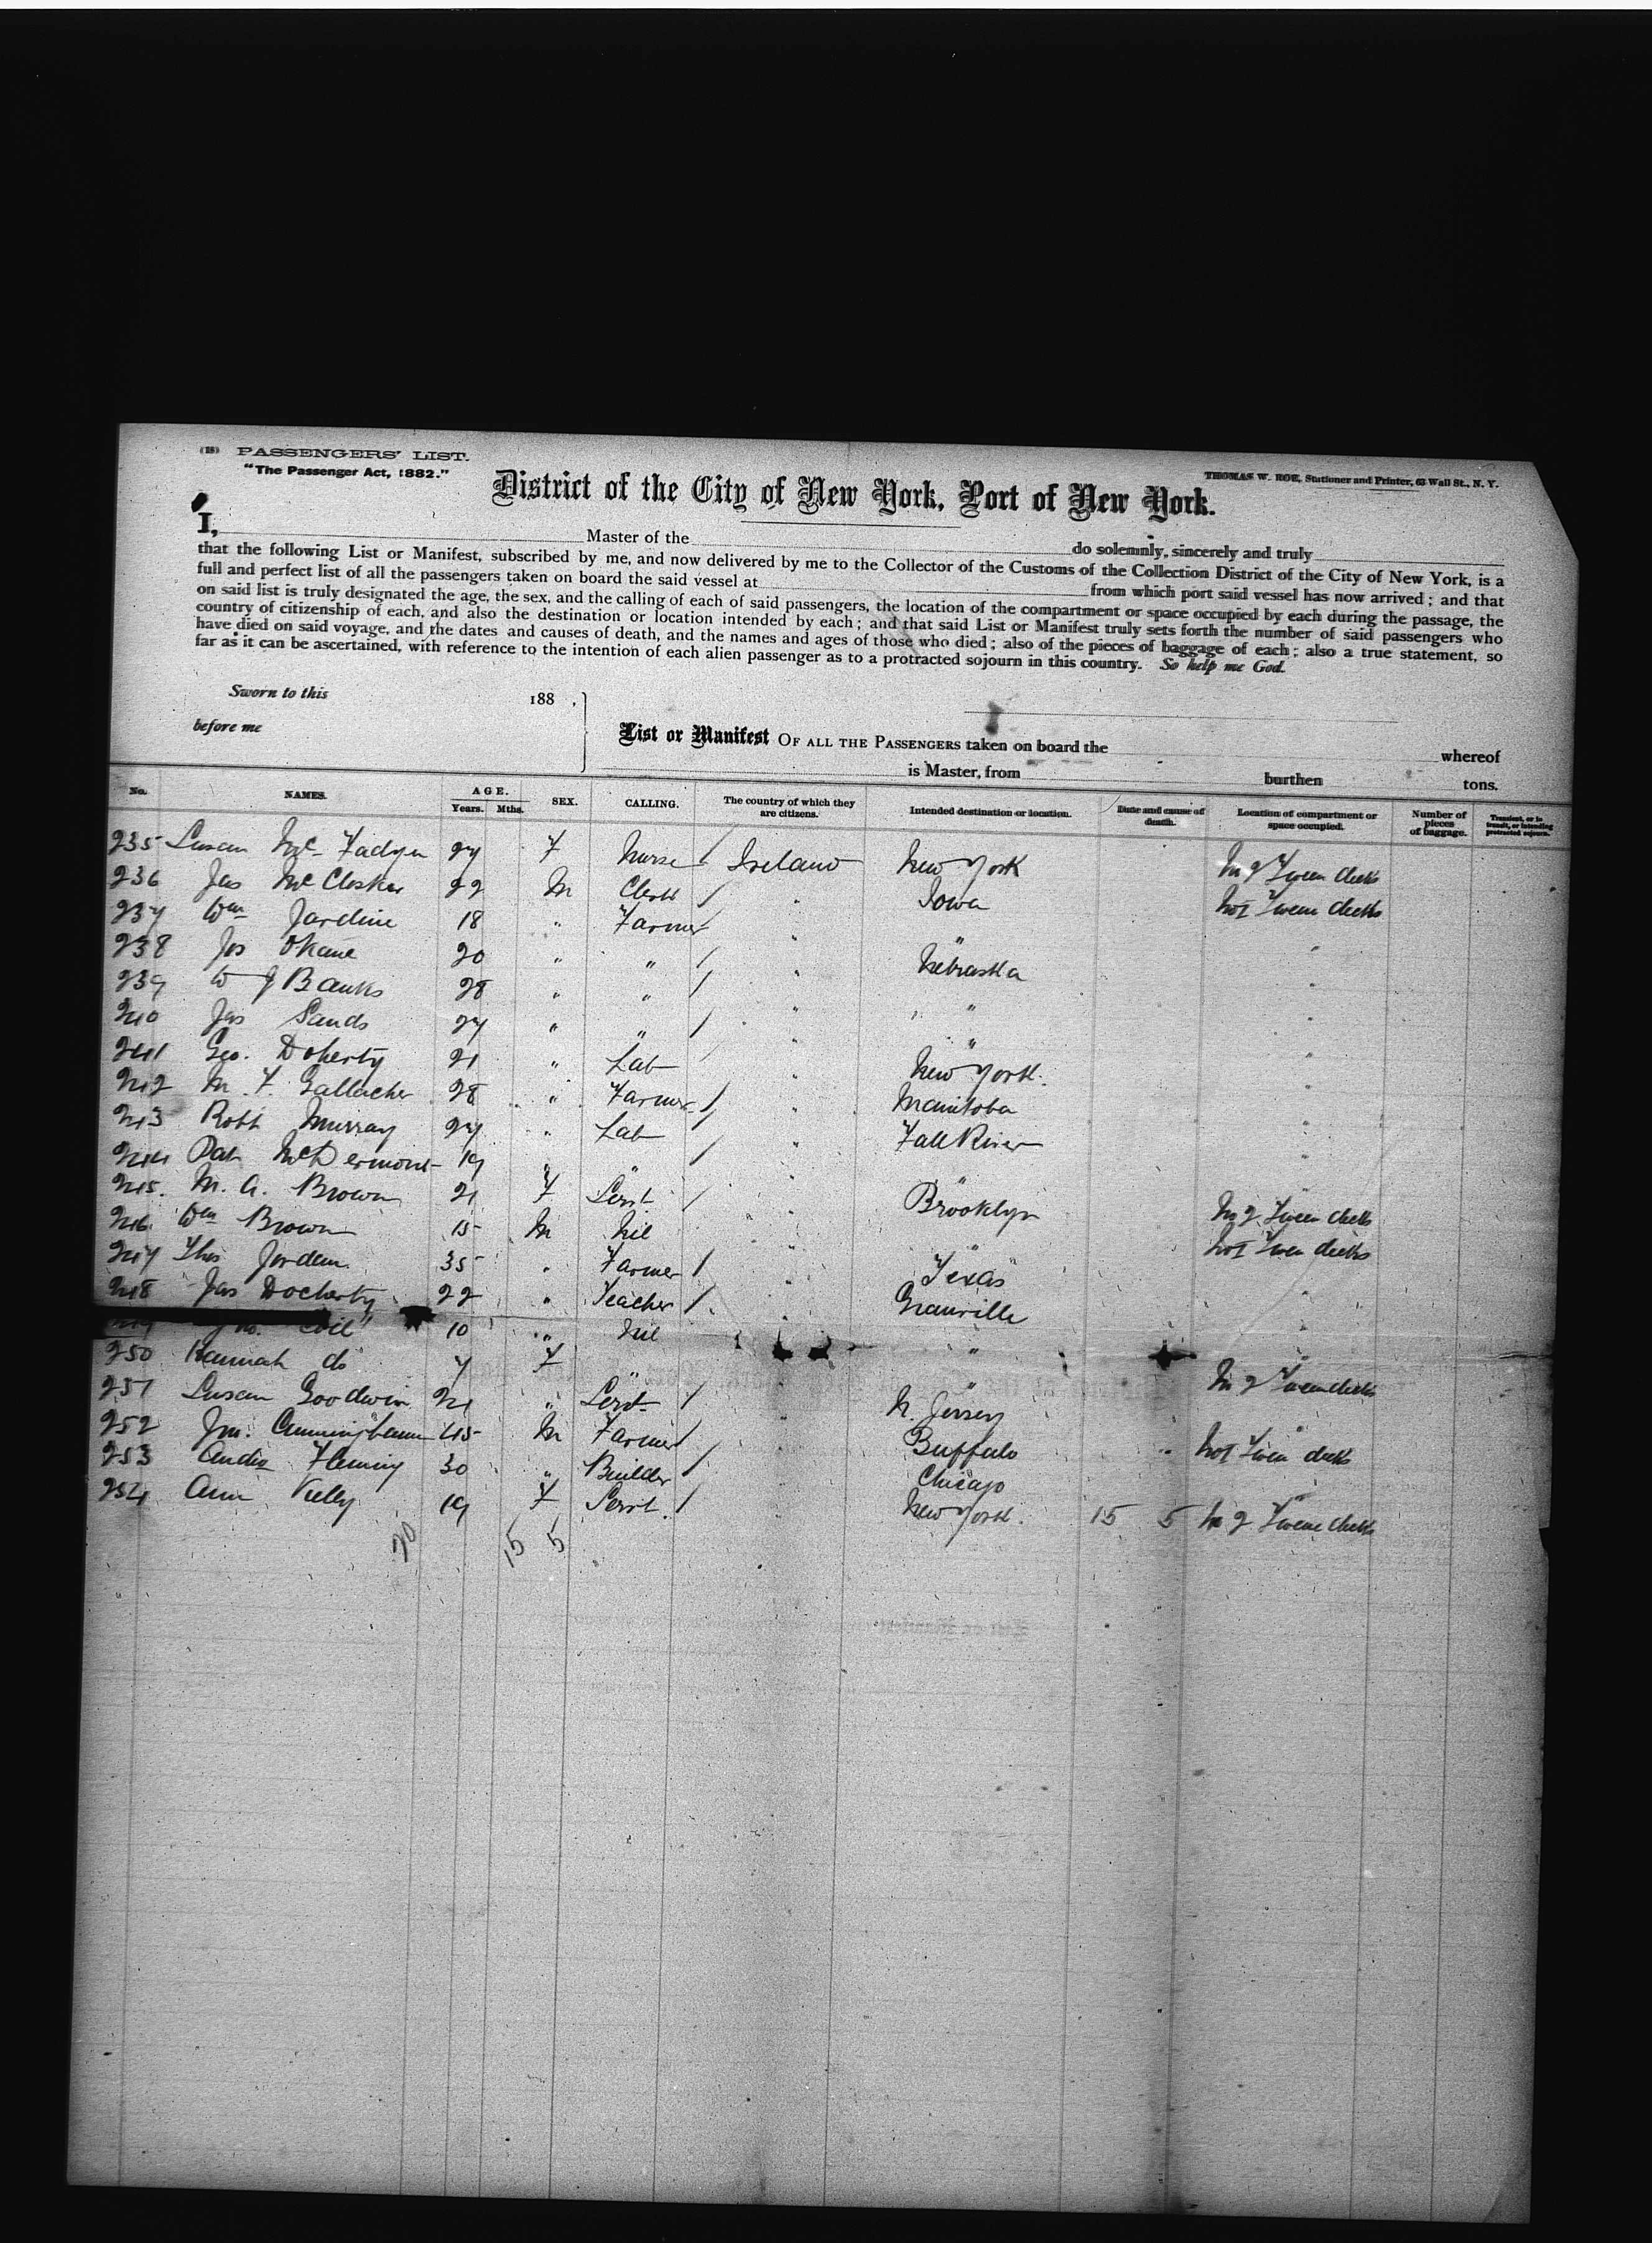 (18) PASSENGERS' LIST.
"The Passenger Act, 1882."
THOMAS W. ROE, Stationer and Printer, 63 Wall St., N. Y.
District of the City of New York, Port of New York.
I, Master of the do solemnly, sincerely and truly
that the following List or Manifest, subscribed by me, and now delivered by me to the Collector of the Customs of the Collection District of the City of New York, is a
full and perfect list of all the passengers taken on board the said vessel at from which port said vessel has now arrived; and that
on said list is truly designated the age, the sex, and the calling of each of said passengers, the location of the compartment or space occupied by each during the passage, the
country of citizenship of each, and also the destination or location intended by each; and that said List or Manifest truly sets forth the number of said passengers who
have died on said voyage, and the dates and causes of death, and the names and ages of those who died; also of the pieces of baggage of each; also a true statement, so
far as it can be ascertained, with reference to the intention of each alien passenger as to a protracted sojourn in this country. So help me God.
Sworn to this 188 ,
before me
List or Manifest OF ALL THE PASSENGERS taken on board the whereof
is Master, from burthen tons.
No. NAMES. AGE. Years. Mths. SEX. CALLING. The country of which they are citizens. Intended destination or location. Date and cause of death. Location of compartment or space occupied. Number of pieces of baggage. Transient, or in transit, or intending protracted sojourn.
235 Susan McFadyen 27 F Nurse / Ireland New York No 2 Tween decks
236 Jas McClosker 22 M Clerk / " Iowa No 1 Tween decks
237 Wm Jardine 18 " Farmer / " " "
238 Jos OKane 20 " " / " Nebraska "
239 W J Banks 28 " " / " " "
240 Jas Sands 27 " " / " " "
241 Geo. Doherty 21 " Lab " New York. "
242 M. F. Gallacher 28 " Farmer / " Manitoba "
243 Robt Murray 27 " Lab / " Fall River "
244 Pat McDermont 19 " " / " " "
245. M. A. Brown 21 F Servt / " Brooklyn No 2 Tween decks
246. Wm Brown 15 M Nil " " No 1 Tween decks
247 Thos Jordan 35 " Farmer / " Texas "
248 Jas Docherty 22 " Teacher / " Granville "
10 " Nil " "
250 Hannah do 7 F " " No 2 Tween decks
251 Susan Goodwin 21 " Servt / " N. Jersey "
252 Jno. Cunningham 45 M Farmer / " Buffalo No 1 Tween decks
253 Fleming 30 " Builder / Chicago "
254 Ann Kelly 19 F Servt. / New York. 15 5 No 2 Tween decks
20 15 5